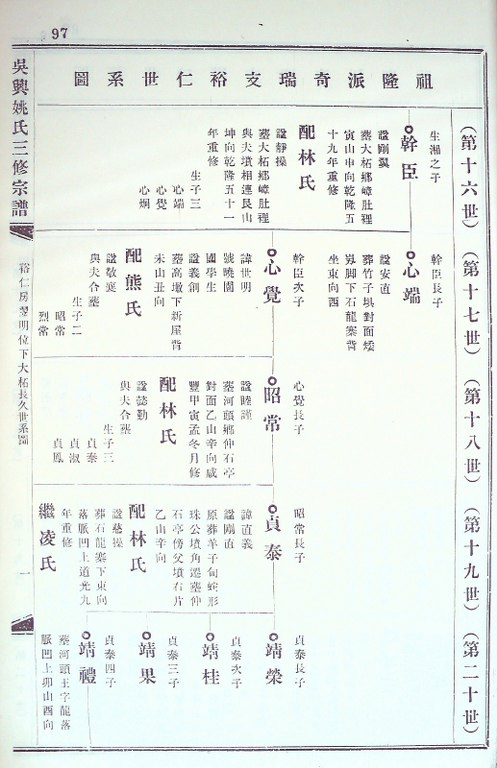 97
吳興姚氏三修宗譜
裕仁房翌明位下大柘長久世系圖
一
祖隆派奇瑞支裕仁世系圖
(第十六世)
生瀚之子
幹臣
諡剛翼
塟大柘鄉嶂肚裡
寅山申向乾隆五
十九年重修
配林氏
諡靜操
塟大柘鄉嶂肚裡
與夫墳相連艮山
坤向乾隆五十一
年重修
生子三
心端
心覺
心烱
(第十七世)
幹臣長子
心端
諡安直
葬竹子垻對面矮
崀脚下石龍寨背
坐東向西
幹臣次子
心覺
諱世明
號曉園
國學生
諡義創
塟高墩下新屋背
未山丑向
配熊氏
諡敬蒑
與夫合塟
生子二
昭常
烈常
(第十八世)
心覺長子
昭常
諡睦謹
塟河頭鄉仲石亭
對面乙山辛向咸
豐甲寅孟冬月修
配林氏
諡懿勤
與夫合塟
生子三
貞泰
貞淑
貞鳳
(第十九世)
昭常長子
貞泰
諱直義
諡剛直
原葬羊子甸蛇形
珠公墳角遷塟仲
石亭傍父墳右片
乙山辛向
配林氏
諡慈操
葬石龍寨下東向
落脈凹上道光九
年重修
繼凌氏
(第二十世)
貞泰長子
靖榮
貞泰次子
靖桂
貞泰三子
靖果
貞泰四子
靖禮
塟河頭王字龍落
脈凹上卯山酉向